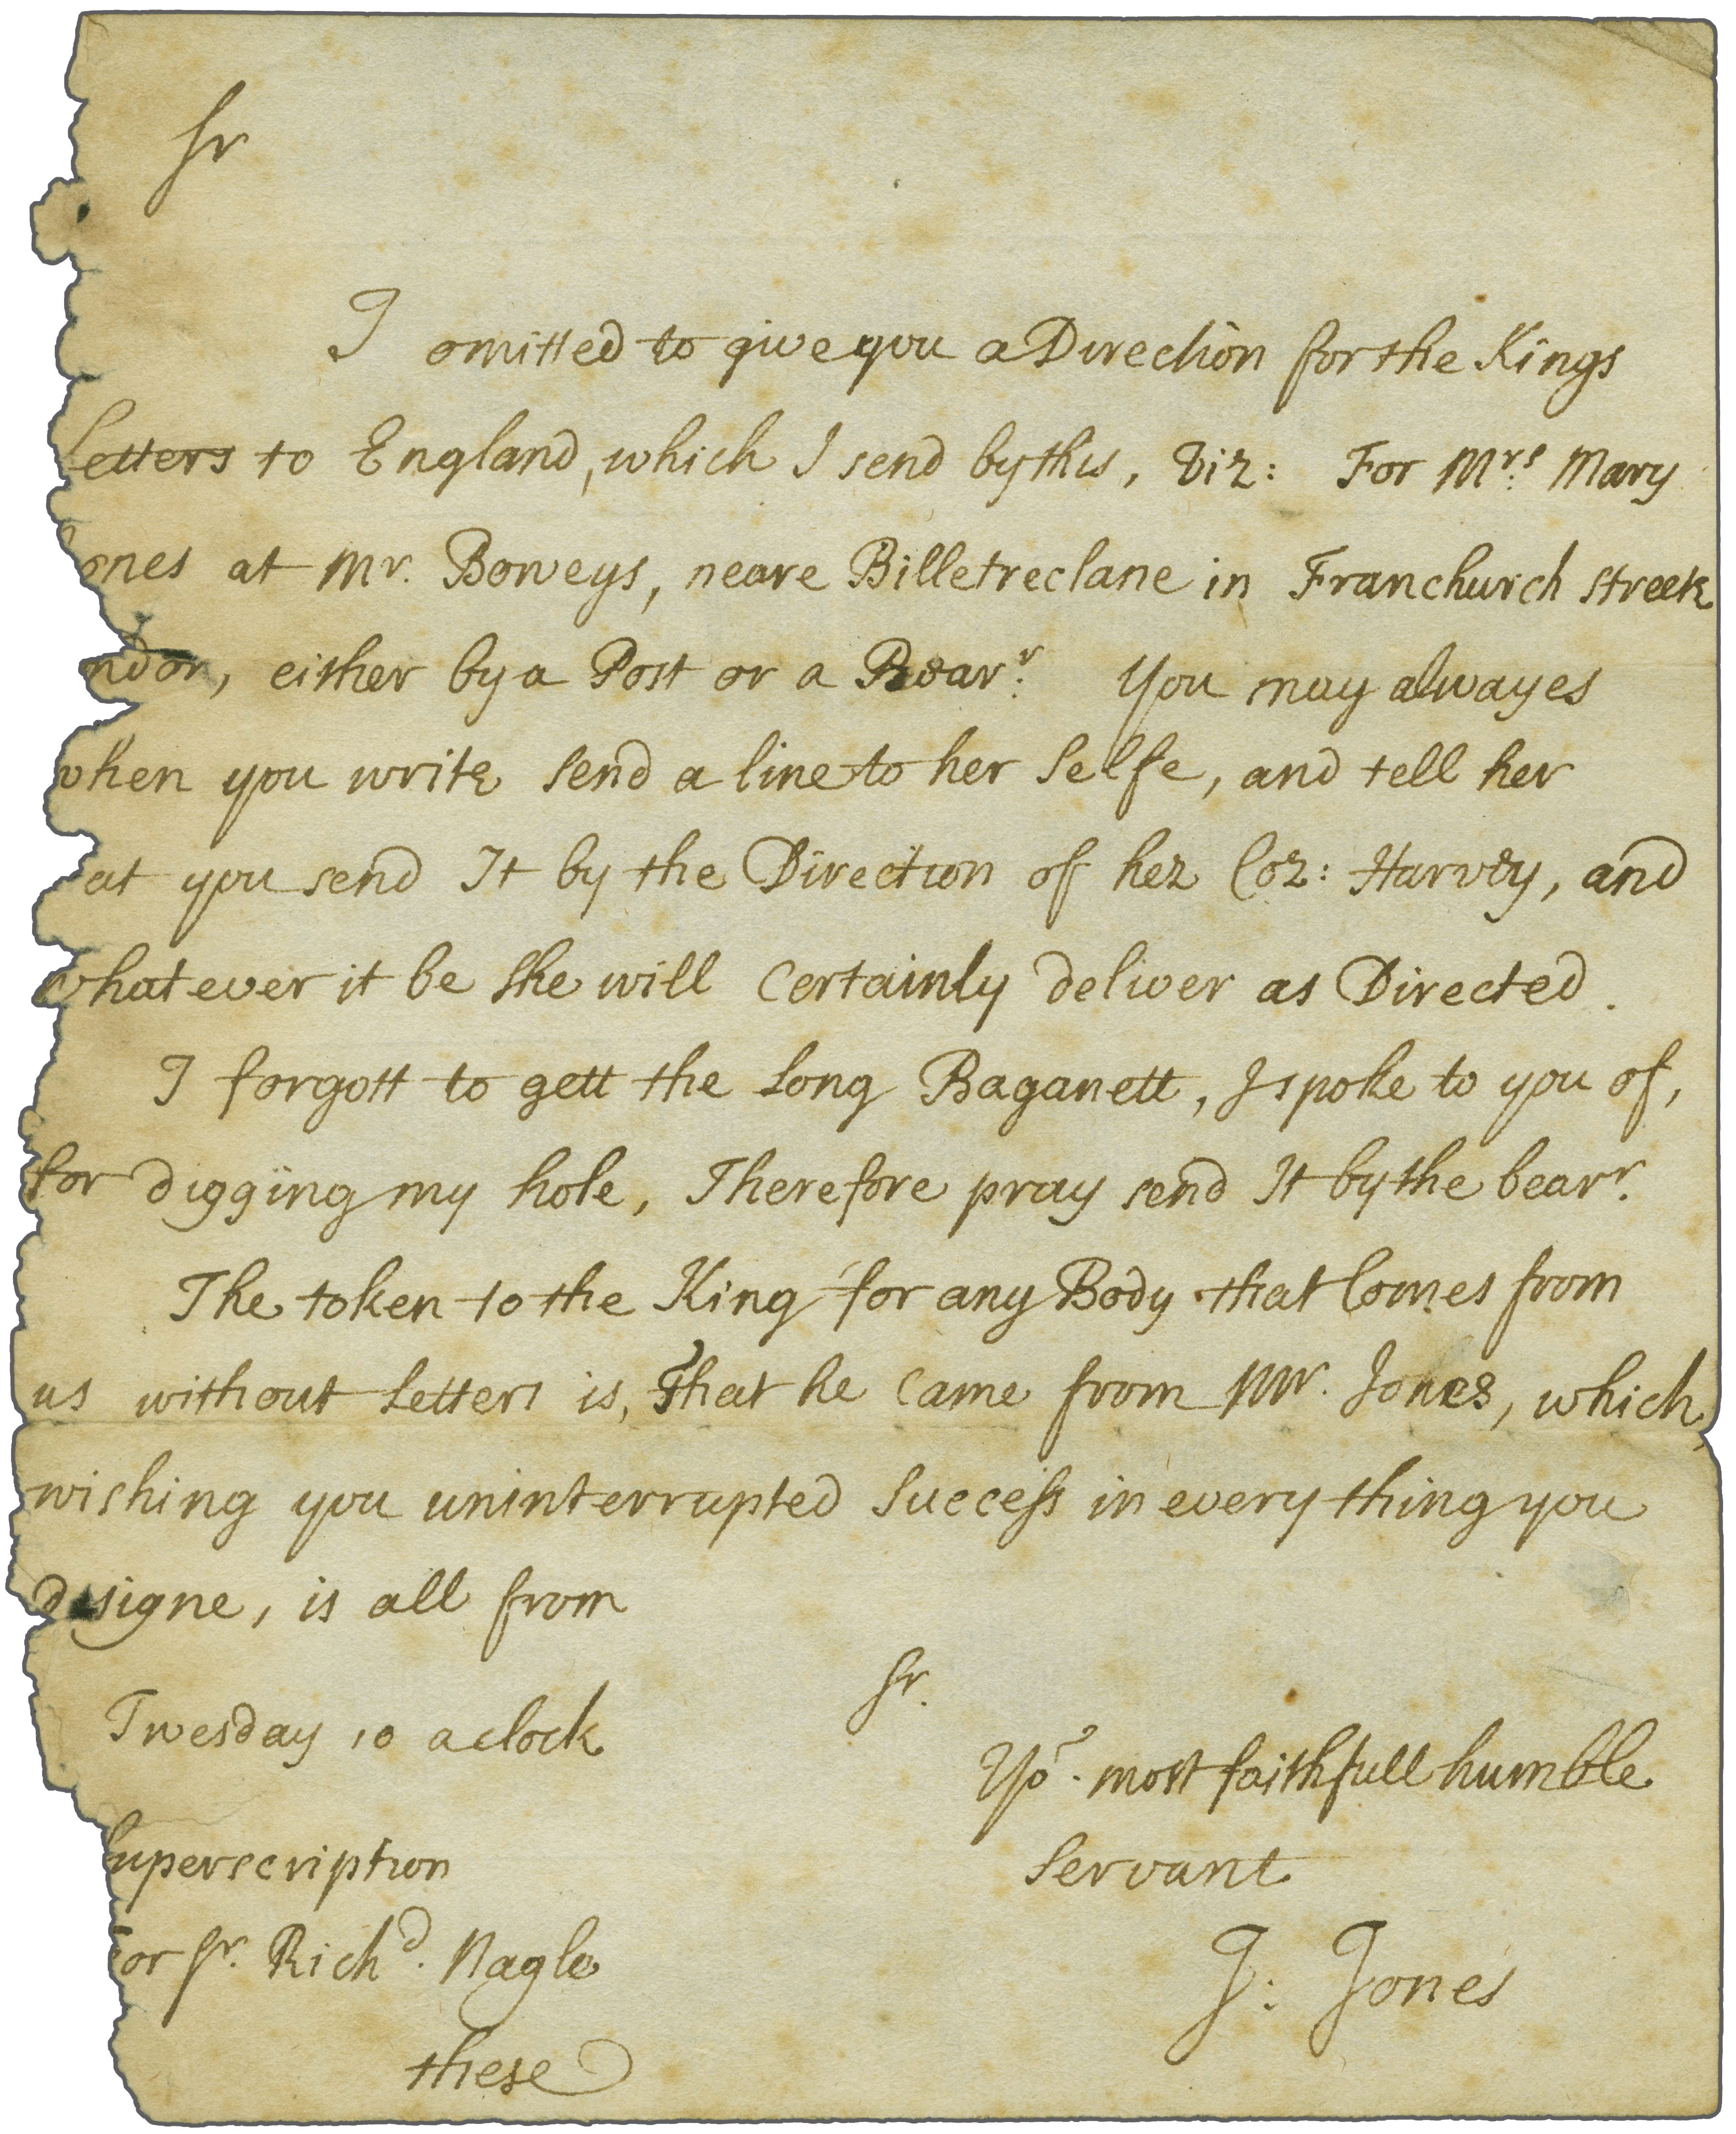 Sr
I omitted to give you a Direction for the Kings
Letters to England, which I send by this, Viz: For Mrs. Mary
ones at Mr. Boweys, neare Billetreclane in Franchurch street
ndon, either by a Post or a Bearr. You may alwayes
when you write send a line to her selfe, and tell her
at you send It by the Direction of her Coz: Harvey, and
whatever it be she will Certainly deliver as Directed.
I forgott to gett the Long Baganett, I spoke to you of,
for digging my hole, Therefore pray send It by the bearr.
The token to the King for any Body that Comes from
us without Letters is, That he Came from Mr. Jones, which,
wishing you uninterrupted Success in every thing you
designe, is all from
Sr.
Twesday 10 a clock
Yor. most faithfull humble
Servant
J: Jones
Superscription
For Sr. Richd. Nagle
these